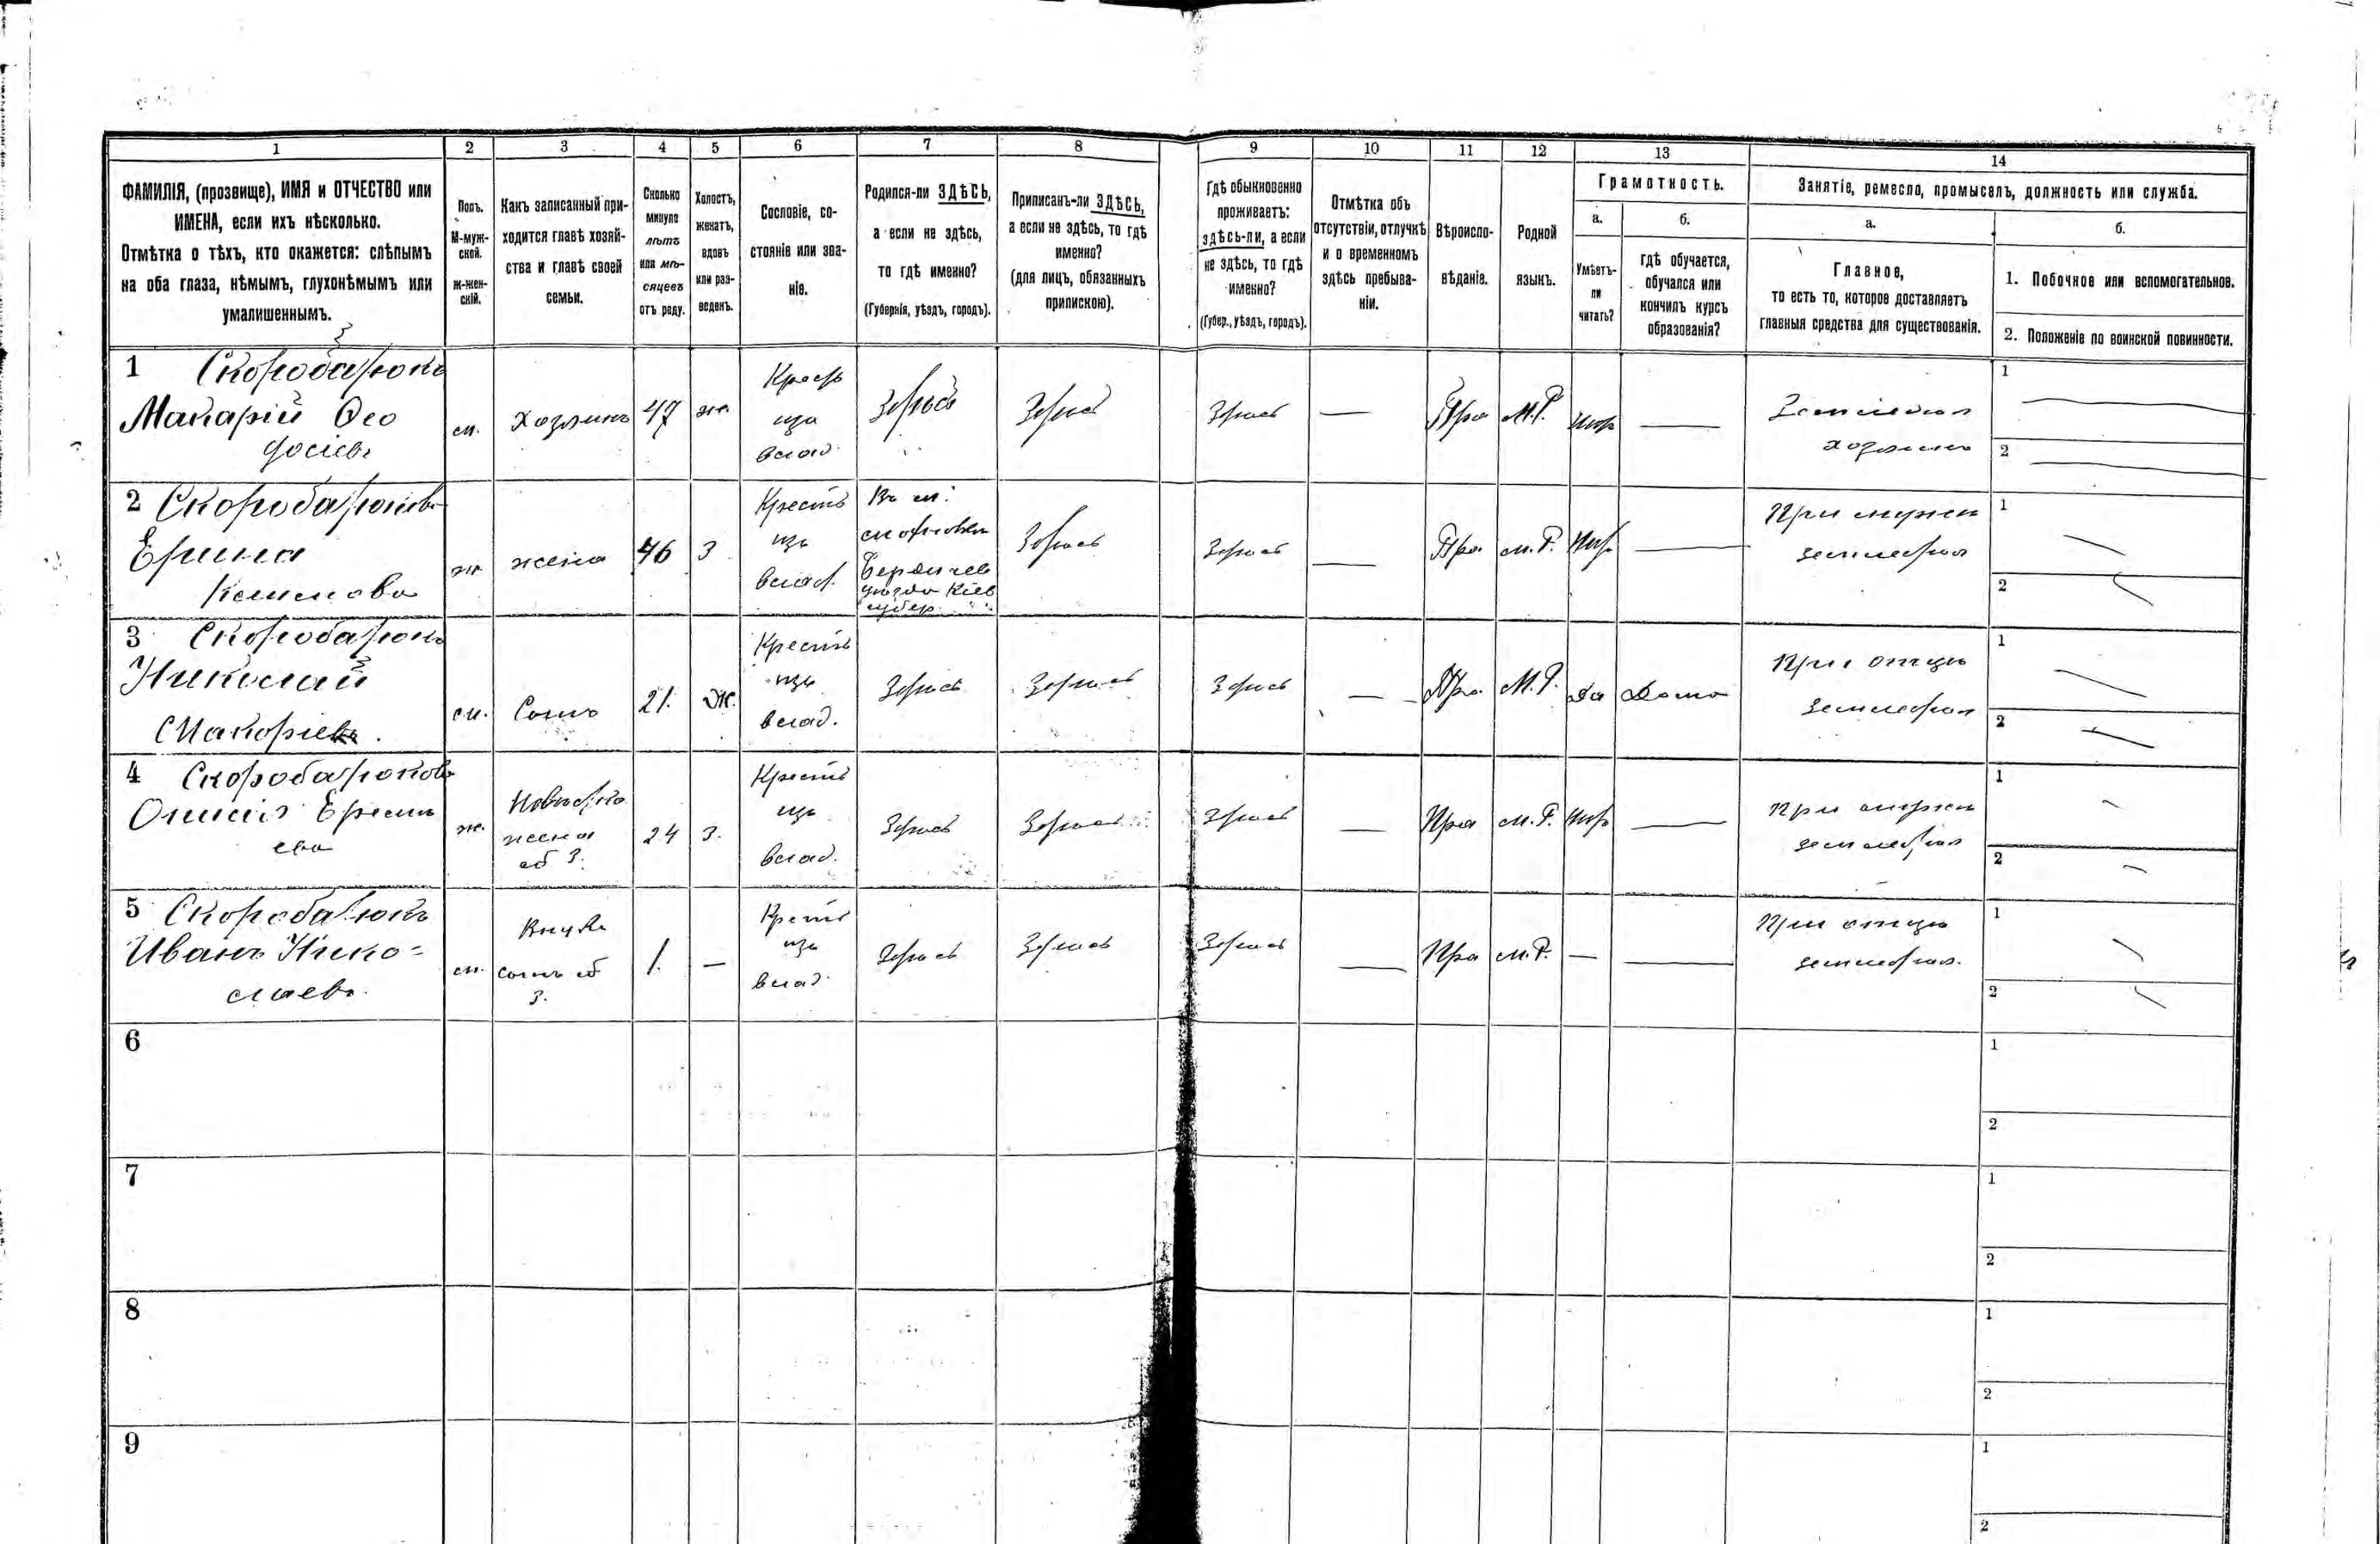 1 2 3 4 5 6 7 8 9 10 11 12 13 14
ФАМИЛІЯ, (прозвище), ИМЯ и ОТЧЕСТВО или
ИМЕНА, если ихъ нѣсколько.
Отмѣтка о тѣхъ, кто окажется: слѣпымъ
на оба глаза, нѣмымъ, глухонѣмымъ или
умалишеннымъ.
Полъ.
М-муж-
ской.
ж-жен-
скій.
Какъ записанный при-
ходится главѣ хозяй-
ства и главѣ своей
семьи.
Сколько
минуло
лѣтъ
или мѣ-
сяцевъ
отъ роду.
Холостъ,
женатъ,
вдовъ
или раз-
веденъ.
Сословіе, со-
стояніе или зва-
ніе.
Родился-ли ЗДѢСЬ,
а если не здѣсь,
то гдѣ именно?
(Губернія, уѣздъ, городъ).
Приписанъ-ли ЗДѢСЬ,
а если не здѣсь, то гдѣ
именно?
(для лицъ, обязанныхъ
припискою).
Гдѣ обыкновенно
проживаетъ:
здѣсь-ли, а если
не здѣсь, то гдѣ
именно?
(Губер., уѣздъ, городъ).
Отмѣтка объ
отсутствіи, отлучкѣ
и о временномъ
здѣсь пребыва-
ніи.
Вѣроиспо-
вѣданіе.
Родной
языкъ.
Грамотность.
а.
Умѣетъ-
ли
читать?
б.
гдѣ обучается,
обучался или
кончилъ курсъ
образованія?
Занятіе, ремесло, промыселъ, должность или служба.
а.
Главное,
то есть то, которое доставляетъ
главныя средства для существованія.
б.
1. Побочное или вспомогательное.
2. Положеніе по воинской повинности.
1
Макарій Ѳео
досіевъ
м.
Хозяинъ
47
ж.
Крест
изъ
влад.
Здѣсь
Здѣсь
Здѣсь
—
Пра
М.Р.
—
хозяинъ
1
2
2
Ерина
ж.
жена
46
З
Крестъ
изъ
влад.
Въ м.
Бердичев
уѣзда Кіев
губер.
Здѣсь
Здѣсь
—
Пра.
м.Р.
—
При мужѣ
1
2
3
Николай
Макаріевъ.
м.
Сынъ
21.
Ж.
Крестъ
изъ
влад.
Здѣсь
Здѣсь
Здѣсь
—
Пра.
М.Р.
Да
Дома
При отцѣ
1
2
4
ева
ж.
жена
об 3.
24
З.
Крестъ
изъ
влад.
Здѣсь
Здѣсь
Здѣсь
—
Пра
м.Р.
—
При мужѣ
1
2
5
Иванъ Нико=
лаевъ.
м.
Внукъ
сынъ об
3.
1.
—
Крестъ
изъ
влад.
Здѣсь
Здѣсь
Здѣсь
—
Пра
м.Р.
—
—
При отцѣ
1
2
6
1
2
7
1
2
8
1
2
9
1
2